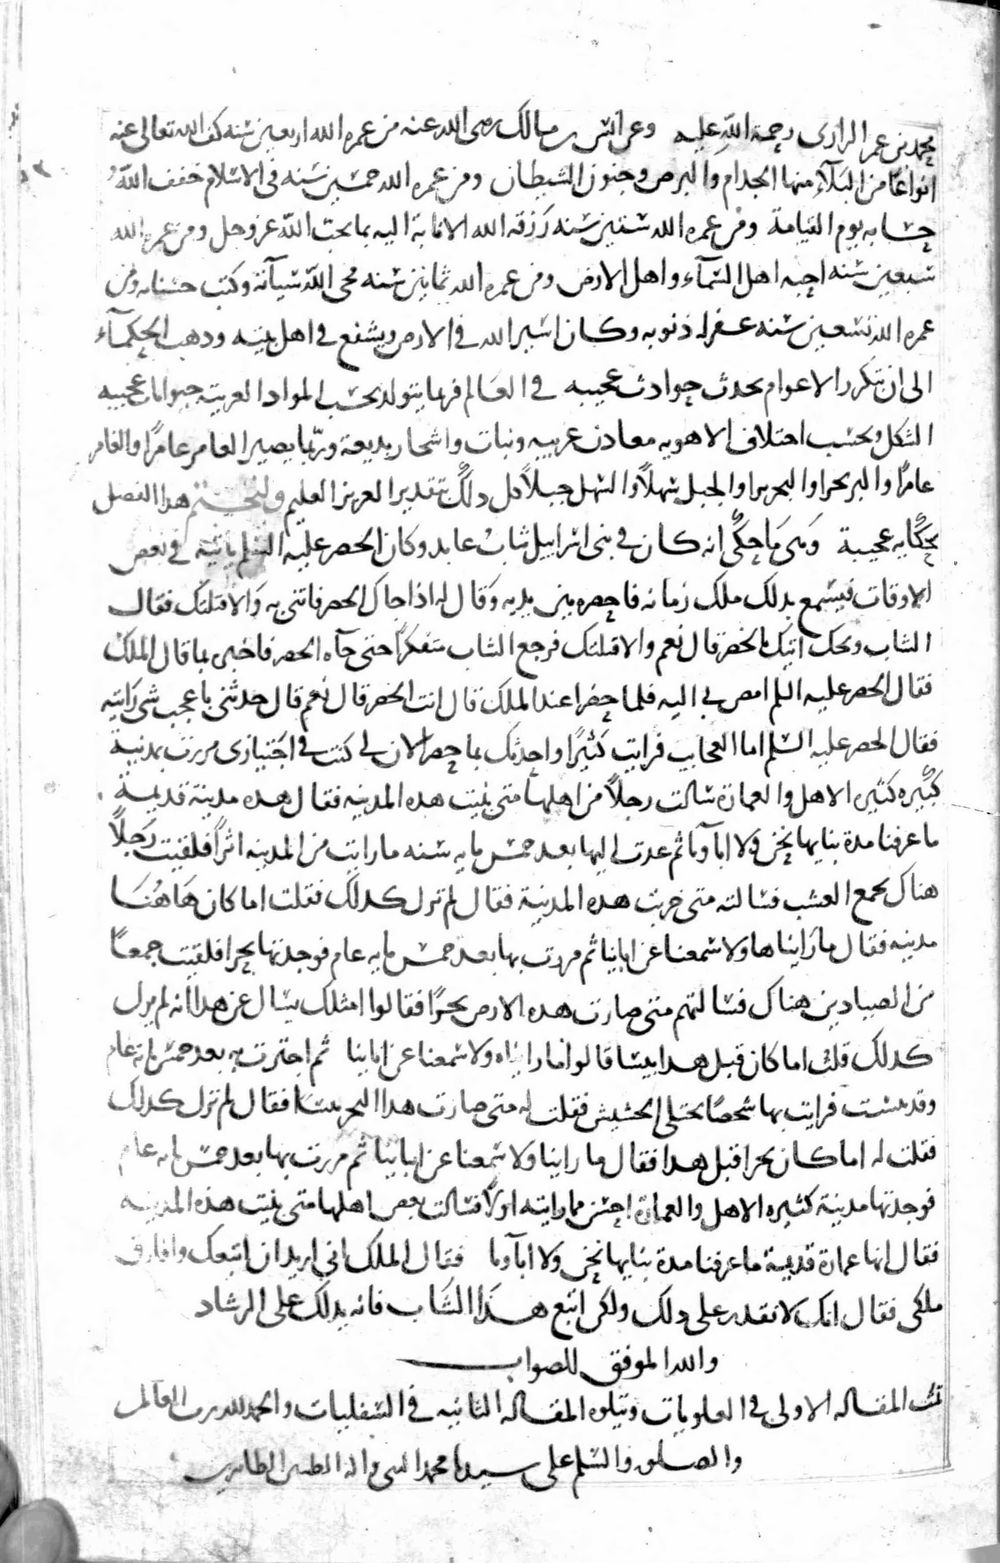 محمد بن عمر الرازى رحمة الله عليه وعن انس بن مالك رضى الله عنه من عمره الله اربعين سنه كف الله تعالى عنه
انواعا من البلاء منها الجذام والبرص وجنون الشيطان ومن عمره الله خمسين سنه فى الاسلام خفف الله
حسابه يوم القيامة ومن عمره الله ستين سنة رزقه الله الانابة اليه بما يحب الله عز وجل ومن عمره الله
سبعين سنه احبه اهل السماء واهل الارض ومن عمره الله ثمانين سنه محى الله سيآته وكتب حسناته ومن
عمره الله تسعين سنه غفر له ذنوبه وكان اسير الله فى الارض ويشفع فى اهل بيته وذهب الحكماء
الى ان بتكرر الاعوام يحدث حوادث عجيبه فى العالم فربما يتولد بحسب المواد الغريبة حيوانات عجيبه
الشكل وبحسب اختلاف الاهويه معادن غريبه ونبات واشجار بديعة وربما يصير العامر غامرا والغامر
عامرا والبر بحرا والبحر برا والجبل سهلا والسهل جبلا كل ذلك بتقدير العزيز العليم ولنختتم هذا الفصل
بحكاية عجيبة وهى ما حكى انه كان فى بنى اسراييل شاب عابد وكان الخضر عليه السلم ياتيه فى بعض
الاوقات فسمع بذلك ملك زمانه فاحضره بين يديه وقال له اذا جاك الخضر فاتنى به والا قتلتك فقال
الشاب ويحك اتيك بالخضر قال نعم والا قتلتك فرجع الشاب متفكرا حتى جاه الخضر فاخبره بما قال الملك
فقال الخضر عليه السلم امض بى اليه فلما حضرا عند الملك قال انت الخضر قال نعم قال حدثنى باعجب شى رايته
فقال الخضر عليه السلم اما العجايب فرايت كثيرا واحدثك بما حضر الان لى كنت فى اجتيازى مررت بمدينة
كبيره كثيره الاهل والعمارة سالت رجلا من اهلها متى بنيت هذه المدينه فقال هذه مدينة قديمة
ما عرفنا مدة بنايها نحن ولا اباونا ثم عدت اليها بعد خمس مايه سنه ما رايت من المدينه اثرا فلقيت رجلا
هناك يجمع العشب فسالته متى خربت هذه المدينة فقال لم تزل كذلك فقلت اما كان هاهنا
مدينه فقال ما رايناها ولا سمعنا عن ابائنا ثم مررت بها بعد خمس مايه عام فوجدتها بحرا فلقيت جمعا
من الصيادين هناك فسالتهم متى صارت هذه الارض بحرا فقالوا امثلك يسال عن هذا انه لم يزل
كذلك قلت اما كان قبل هذا يبسا قالوا ما رايناه ولا سمعنا عن ابائنا ثم اجتزت به بعد خمس مايه عام
وقد يبست فرايت بها شخصا يختلى الحشيش فقلت له متى صارت هذا البحر يبسا فقال لم تزل كذلك
فقلت له اما كان بحرا قبل هذا فقال ما راينا ولا سمعنا عن ابائنا ثم مررت بها بعد خمس مايه عام
فوجدتها مدينة كثيره الاهل والعمارة احسن مما رايته اولا فسالت بعض اهلها متى بنيت هذه المدينه
فقال انها عمارة قديمة ما عرفنا مدة بنايها نحن ولا اباونا فقال الملك انى اريد ان اتبعك وافارق
ملكى فقال انك لا تقدر على ذلك ولكن اتبع هذا الشاب فانه يدلك على الرشاد
والله الموفق للصواب
تمت المقاله الاولى فى العلويات ويتلوه المقاله الثانيه فى السفليات والحمد لله رب العالمين
والصلوة والسلم على سيدنا محمد النبى واله الطيبين الطاهرين